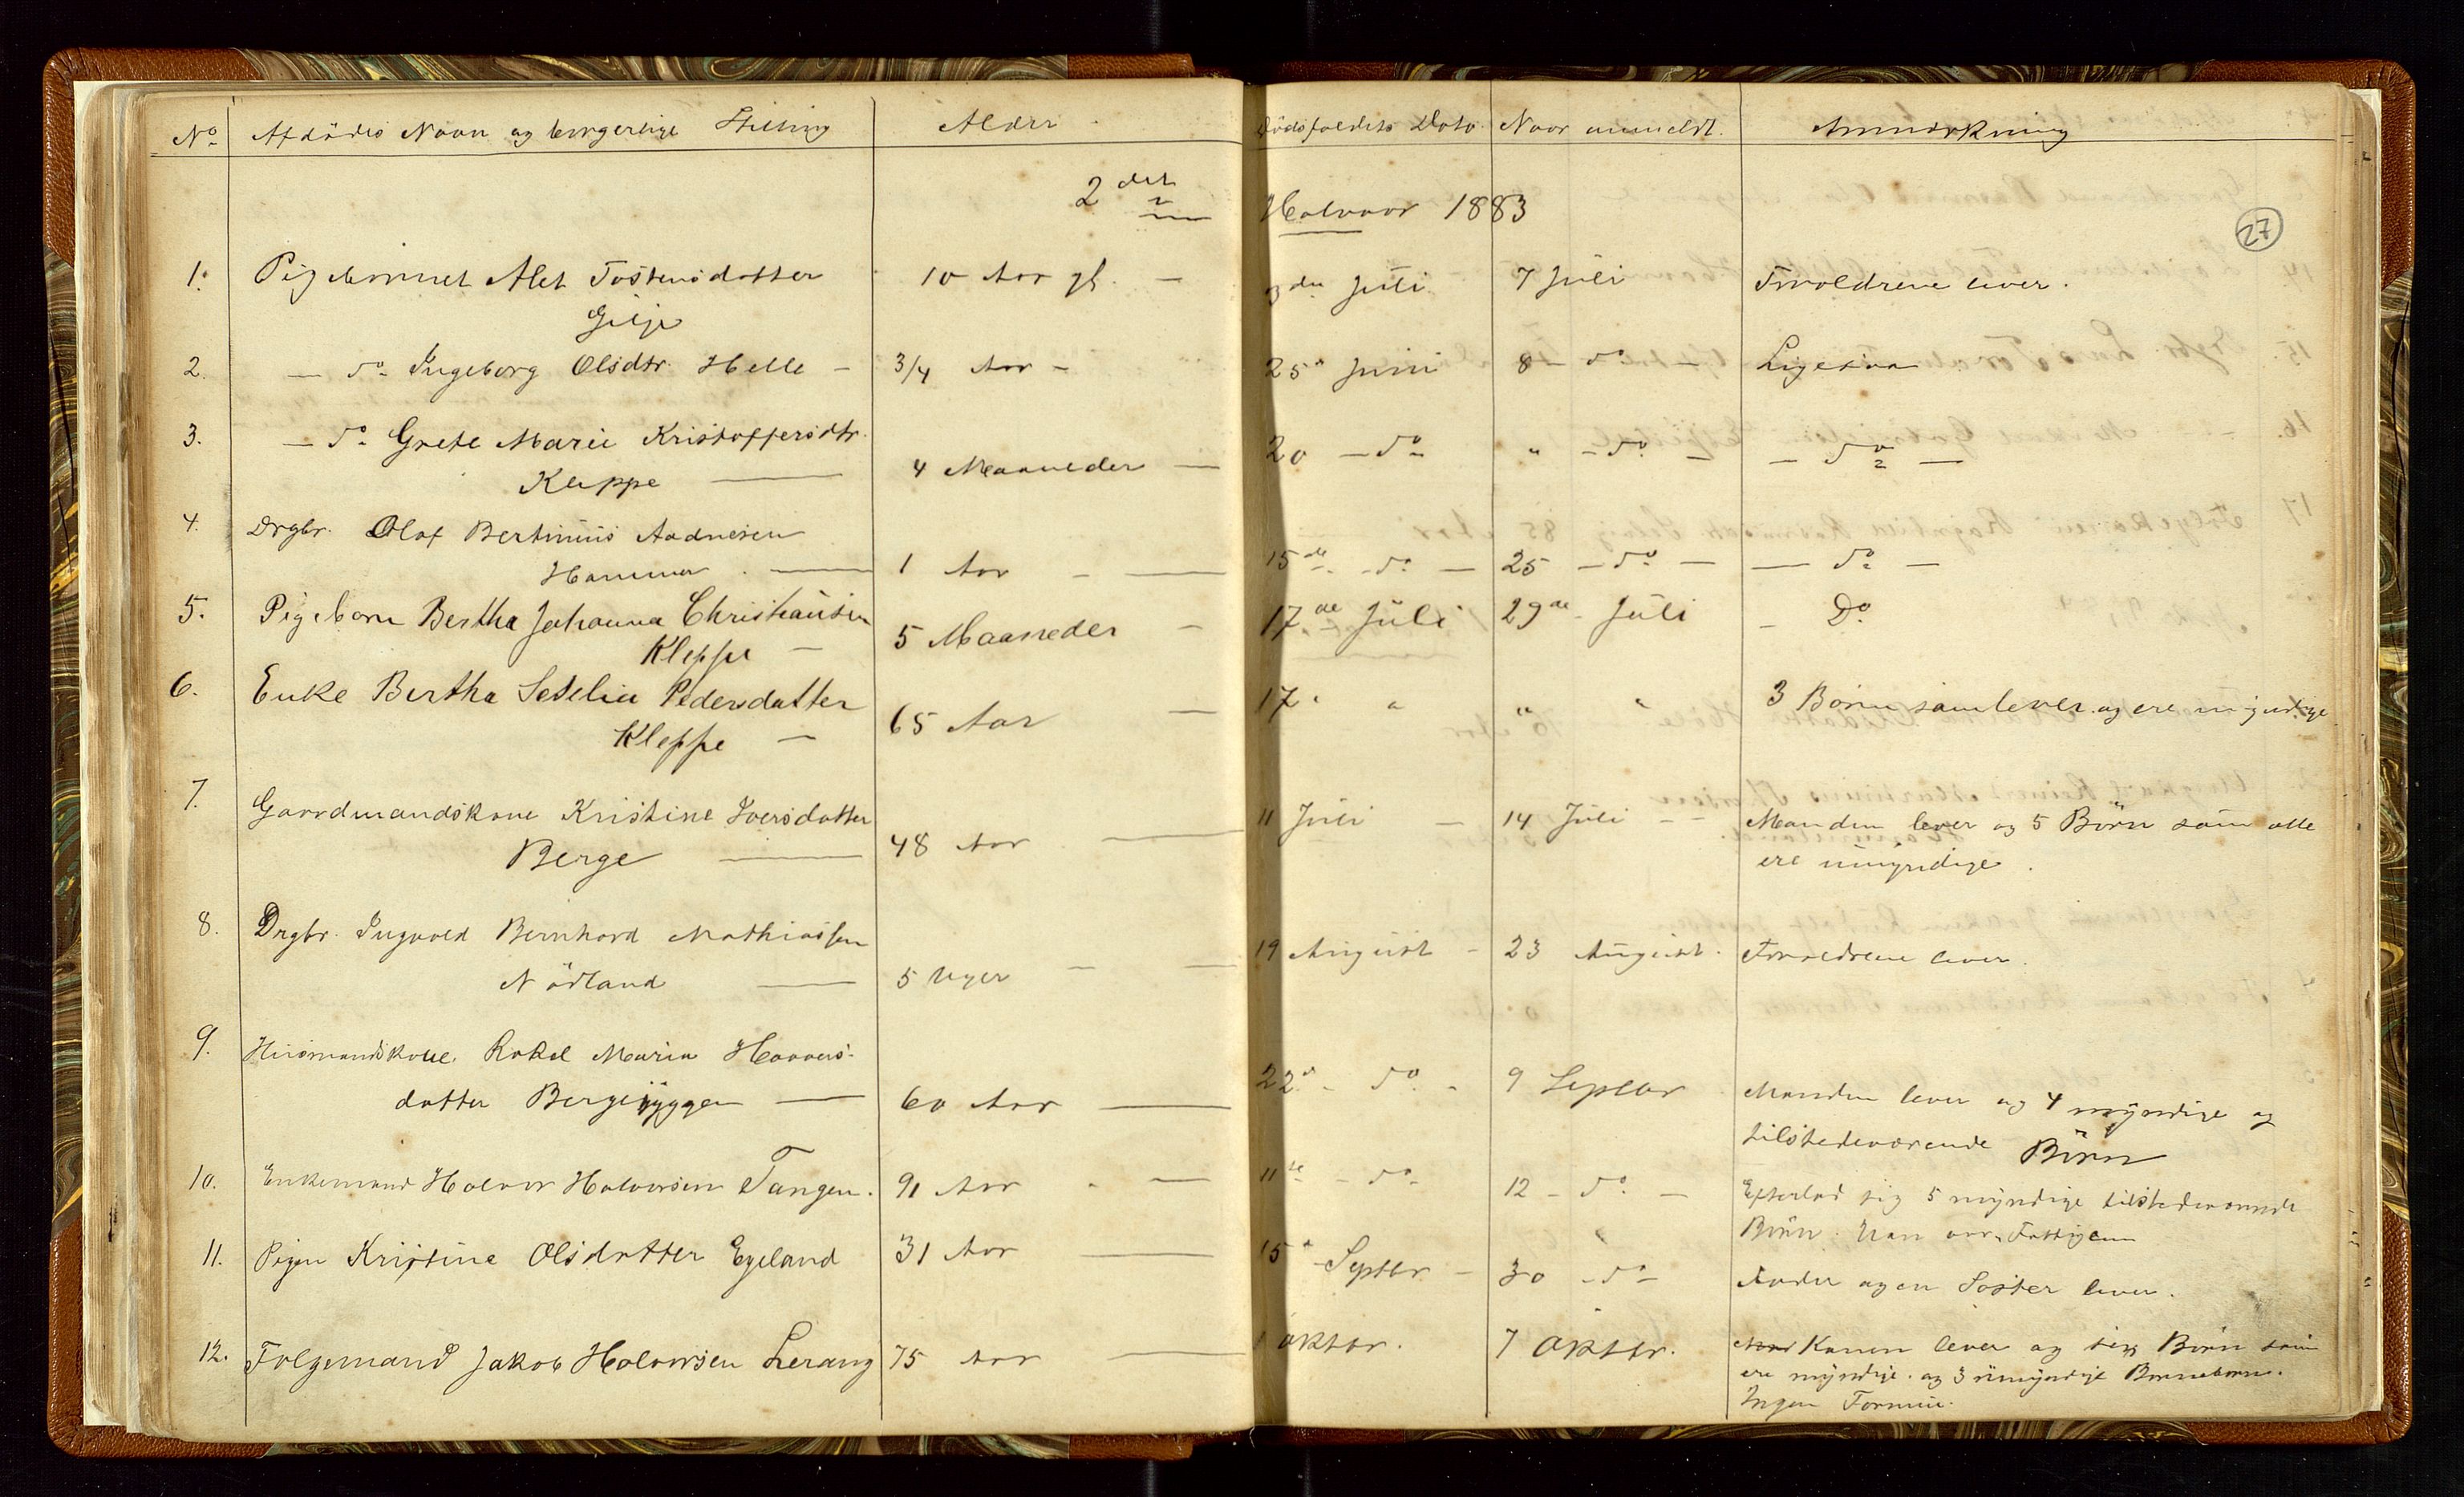 No Afdödes Navn og borgerlige Stilling Alder Dödsfaldets Dato Naar anmeldt. Anmærkning
2det Halvaar 1883
27
1. Pigebarnet Alet Tostensdatter 10 Aar gl. — 3die Juli 7 Juli Forældrene lever.
Gilje
2. — do Ingeborg Olsdtr. Helle — 3/4 Aar — 25de Juni 8 — do — Ligesaa
3. — do Grete Marie Kristoffersdtr. 20 — do " — do — — do —
Kleppe — 4 Maaneder —
4. Drgbr. Olaf Bertinius Aadnesen
Hammer — 1 Aar — 15de — do — 25 — do — — do —
5. Pigebarn Bertha Johanna Christiansen 17de Juli 29de Juli — Do
Kleppe — 5 Maaneder —
6. Enke Bertha Setelia Pedersdatter 17 " " " " 3 Börn som lever og ere myndige
Kleppe — 65 Aar —
7. Gaardmandskone Kristine Iversdatter 11 Juli — 14 Juli — Manden lever og 5 Börn som alle
Berge — 48 Aar — ere umyndige.
8. Drgbr. Ingvald Bernhard Mathiassen 19 August — 23 August. Forældrene lever.
Nödland — 5 Uger —
9. Husmandskone Rakel Maria Haavers-
datter Bergeiyggen — 60 Aar — 22de — do — 9 Septbr Manden lever og 4 myndige og
tilstedeværende Börn
10. Enkemand Halvor Halvorsen Tangen. 91 Aar — 11te — do — 12 — do — Efterlod sig 5 myndige tilstedeværende
Börn. Han var Fattiglem
11. Pigen Kristine Olsdatter Egeland 31 Aar — 15de Septbr — 30 — do — Fader og en Söster lever.
12. Folgemand Jakob Halvorsen Lerang 75 Aar — 1 Oktbr. 7 Oktbr. Konen lever og sex Börn som
ere myndige. og 3 umyndige Börnebörn.
Ingen Formue.